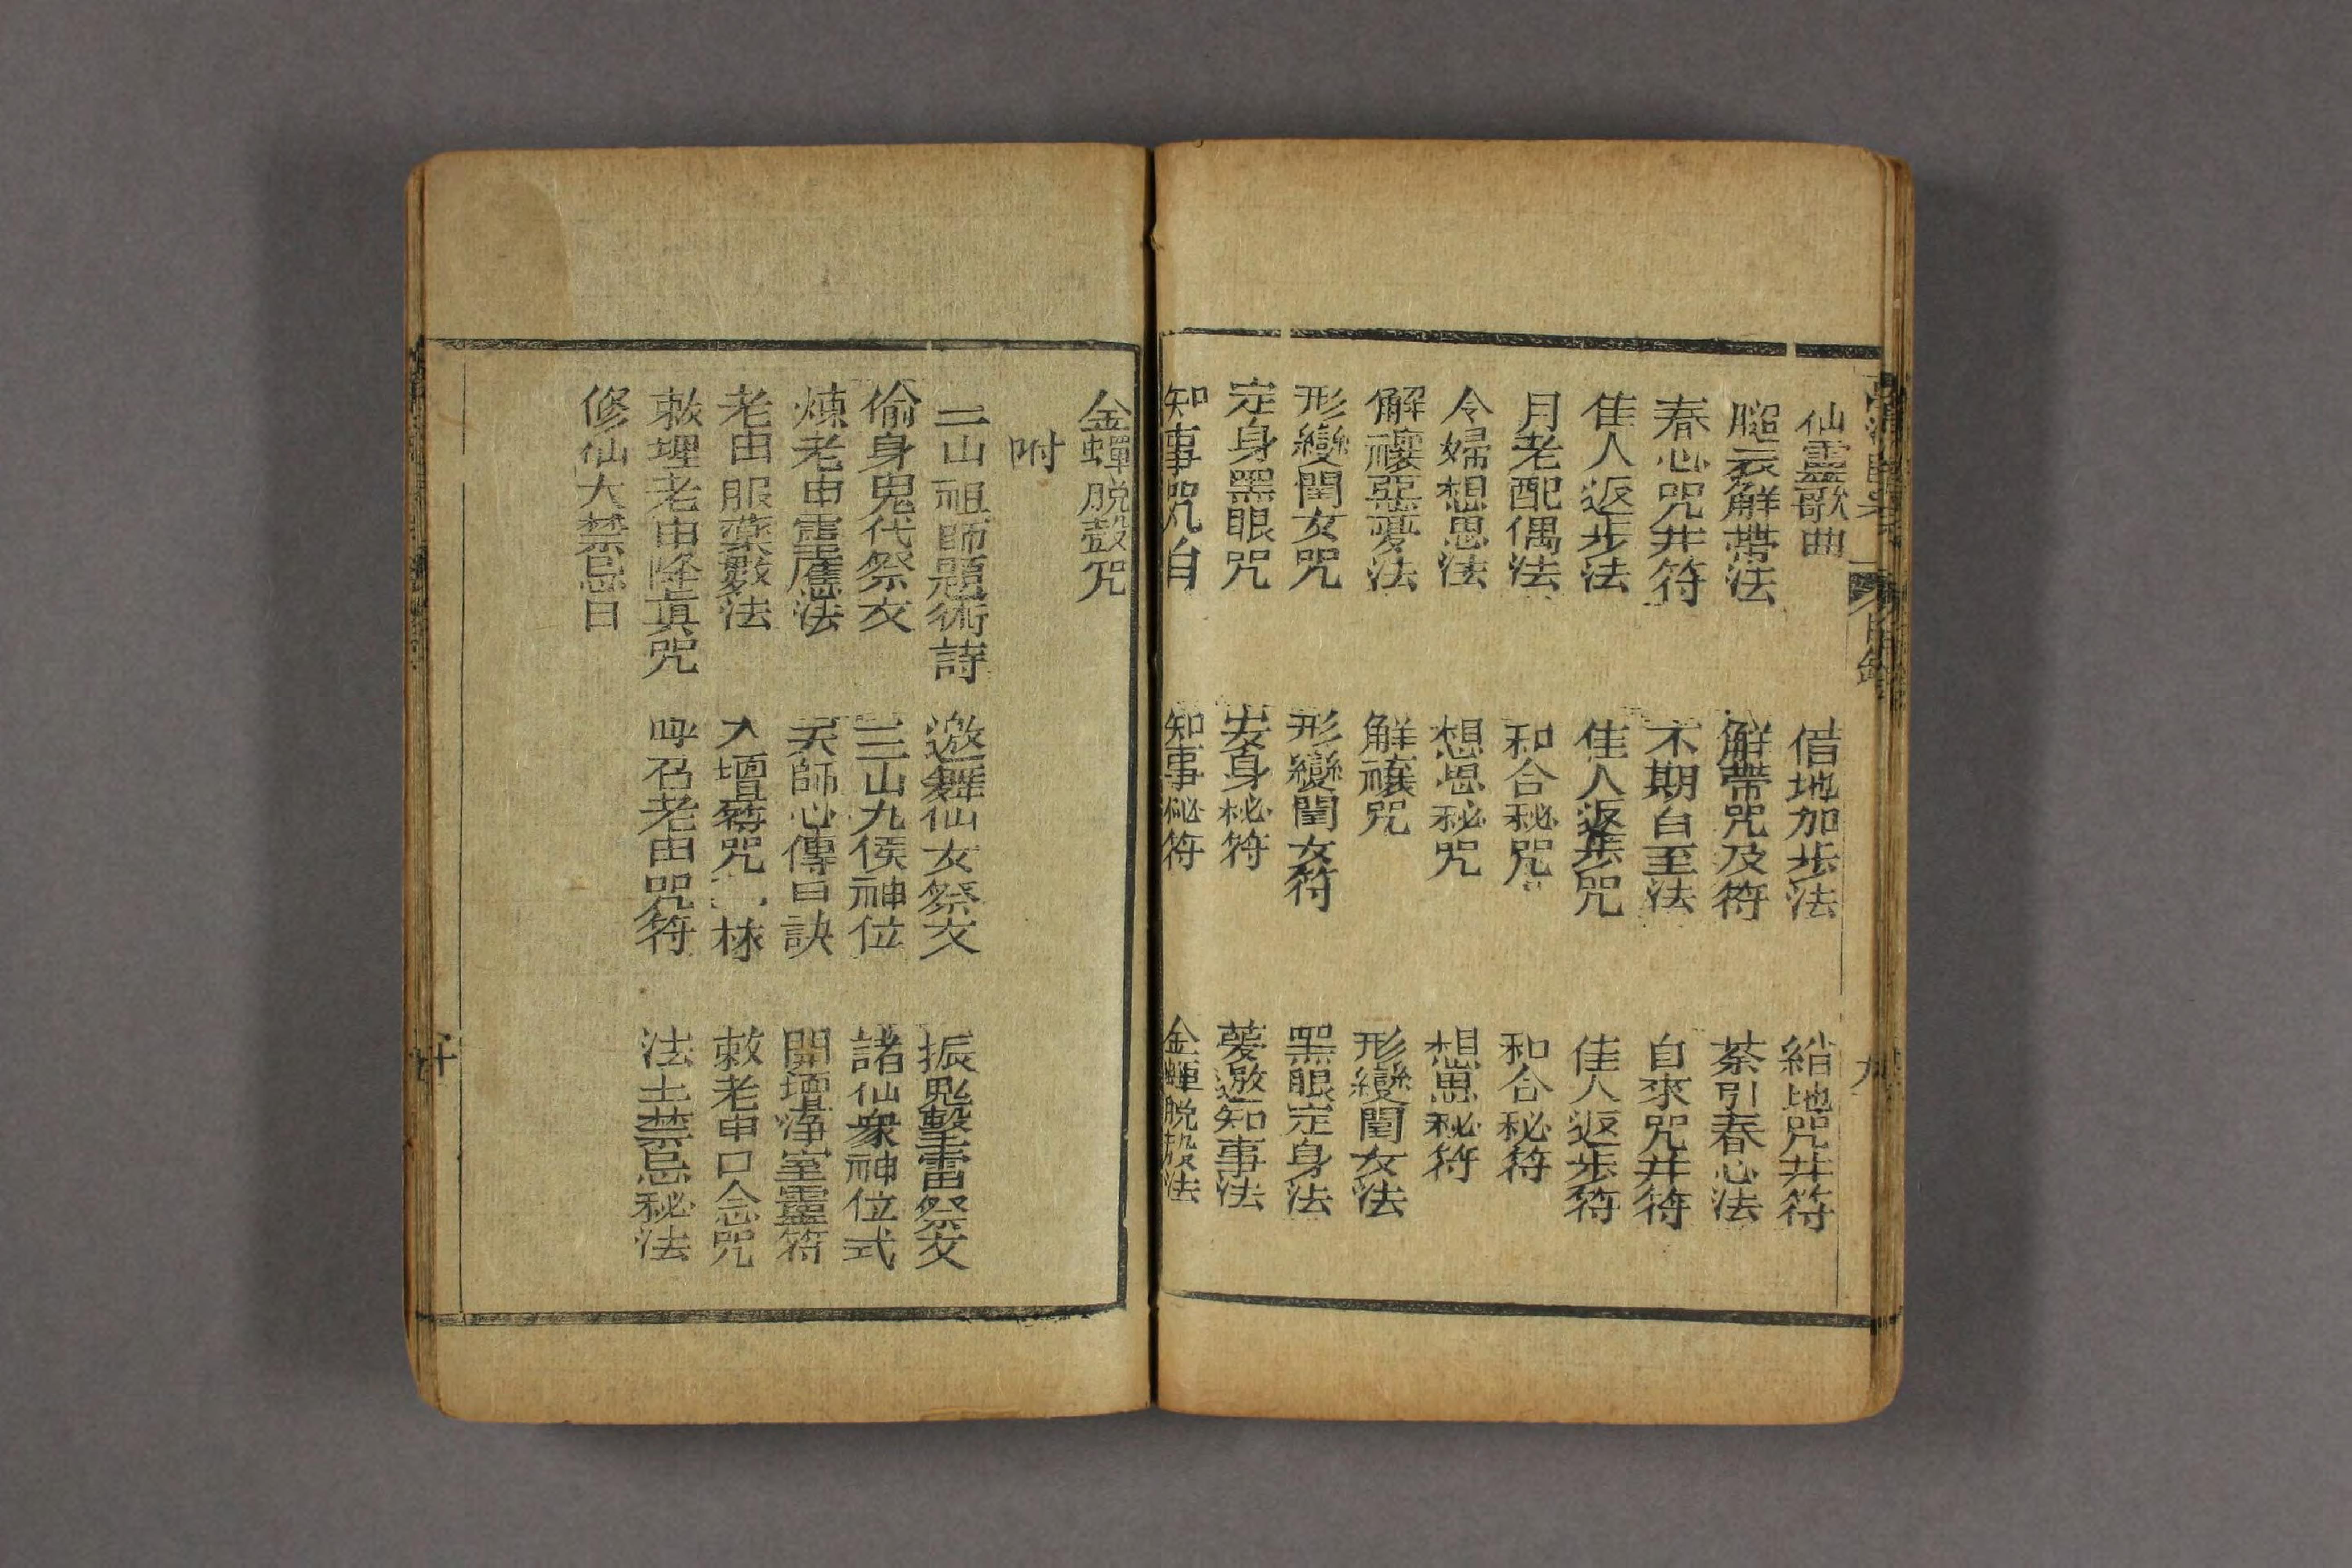 仙靈歌曲　借地加步法　縮地咒并符
脫衣解帶法　解帶咒及符　茶引春心法
春心咒并符　不期自至法　自來咒并符
佳人返步法　佳人返步咒　佳人返步符
月老配偶法　和合秘咒　和合秘符
令婦想思法　想思秘咒　想思秘符
解禳惡夢法　解禳咒　形變閨女法
形變閨女咒　形變閨女符　黑眼定身法
定身黑眼咒　安身秘符　夢邀知事法
知事咒　知事秘符　金蟬脫殼法
九
金蟬脫殼咒
附
三山祖師題術詩　邀舞仙女祭文　振鬼擊雷祭文
偷身鬼代祭文　三山九侯神位　諸仙衆神位式
煉老由靈應法　天師心傳口訣　開壇淨室靈符
老由服藥數法　入壇符咒　敕老由口念咒
敕埋老由降眞咒　呼召老由咒符　法士禁忌秘法
修仙大禁忌日
十